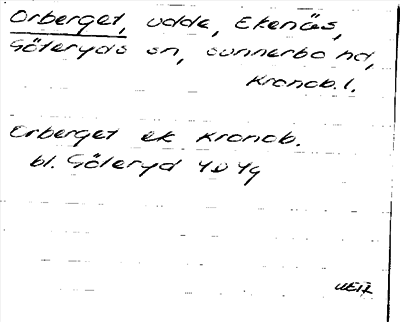 Orberget, udde, Ekenäs,
Göteryds sn, Sunnerbo hd,
Kronob. l.
Orberget ek Kronob.
bl. Göteryd 4D 4g